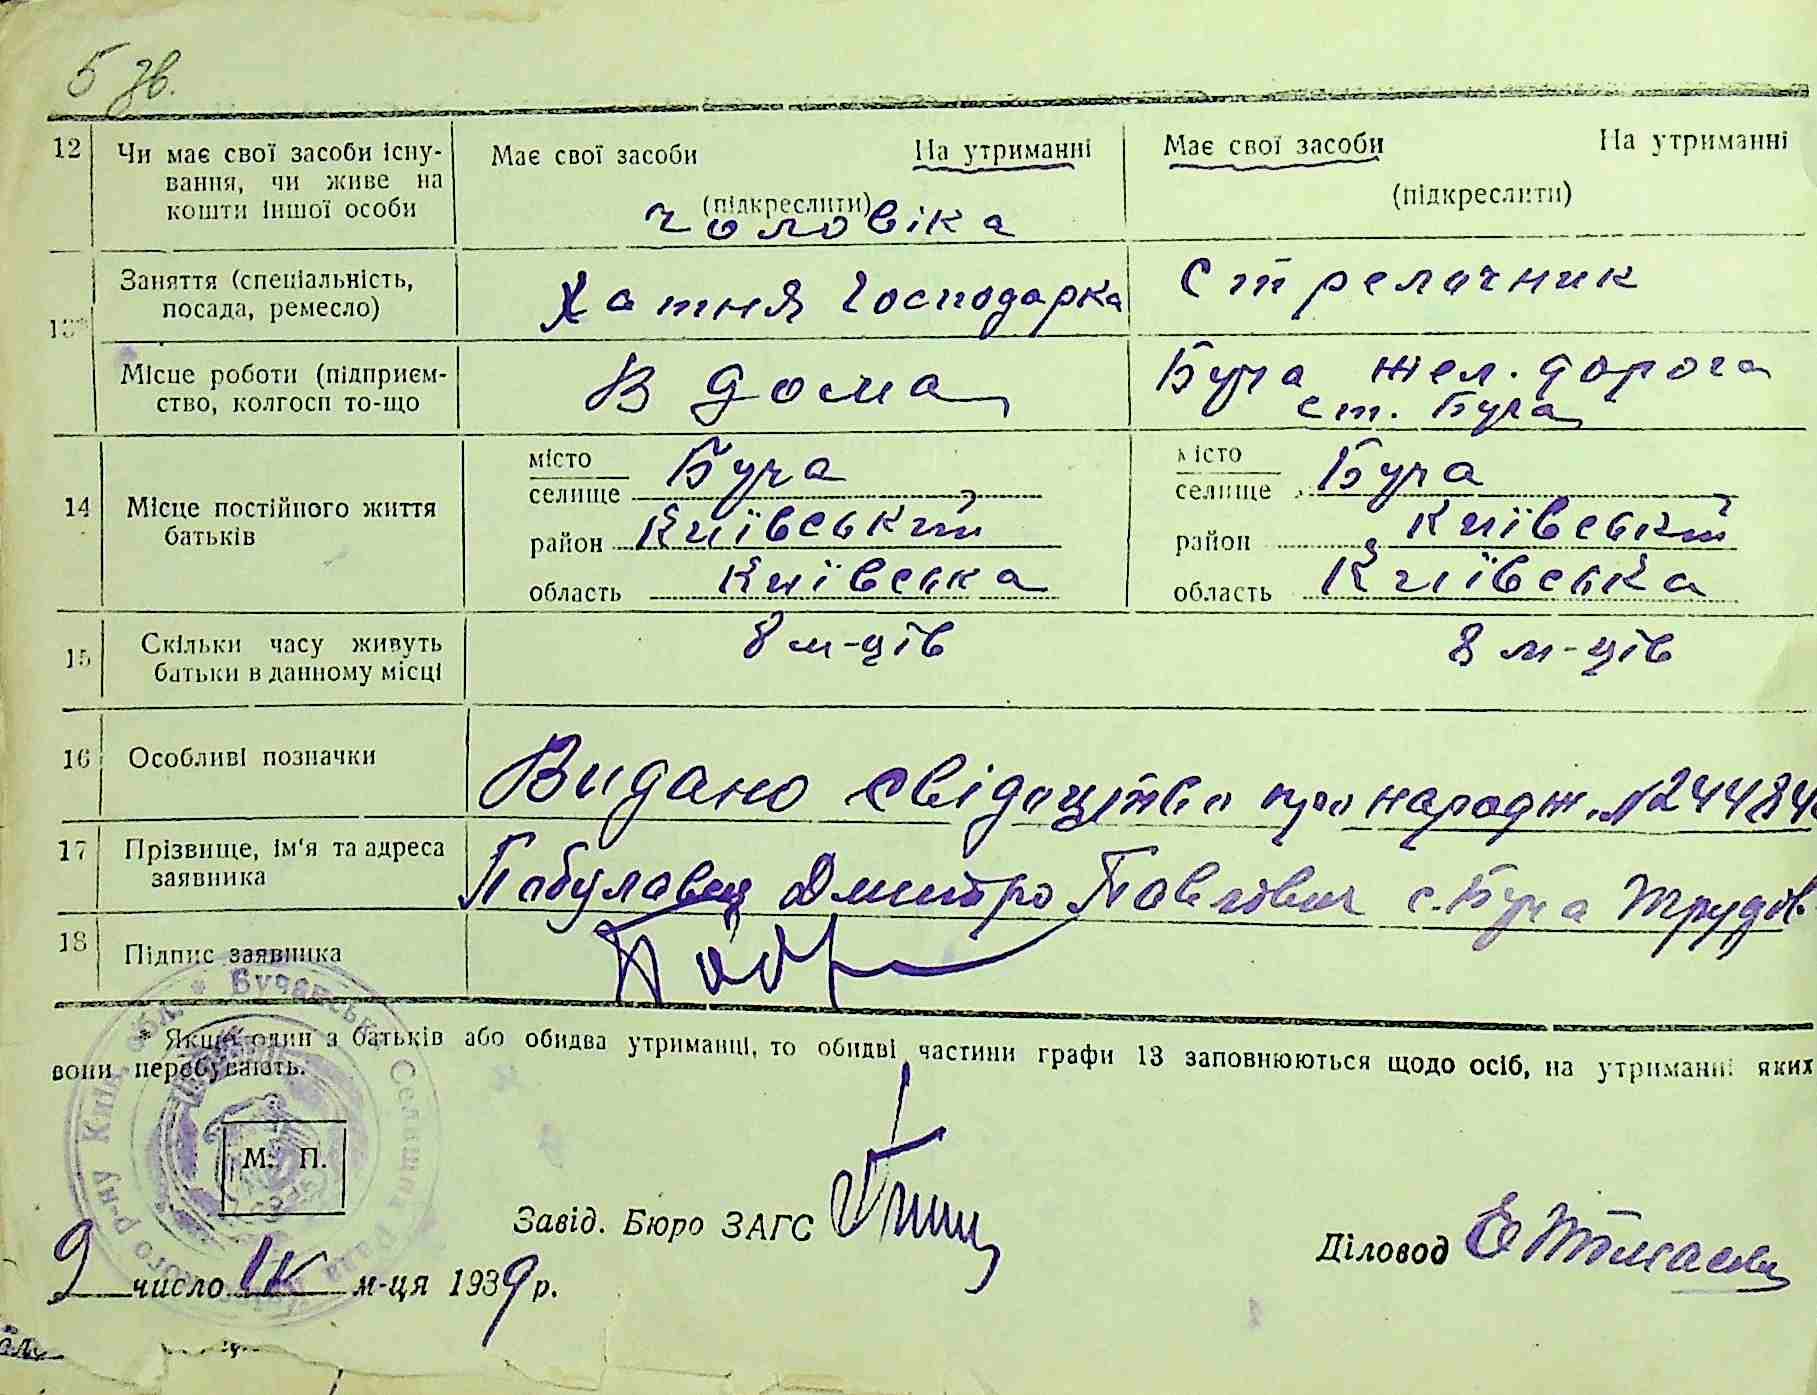 5 зв.
12 Чи має свої засоби існу- Має свої засоби На утриманні Має свої засоби На утриманні
вання, чи живе на (підкреслити) (підкреслити)
кошти іншої особи чоловіка
13* Заняття (спеціальність, Хатня господарка Стрелочник
посада, ремесло)
Місце роботи (підприєм- В дома Буча жел. дорога
ство, колгосп то-що ст. Буча
14 Місце постійного життя батьків
місто Буча місто Буча
селище селище
район Київський район Київський
область Київська область Київська
15 Скільки часу живуть 8 м-ців 8 м-ців
батьки в данному місці
16 Особливі позначки Видано свідоцтво про народж. №
17 Прізвище, ім'я та адреса Дмитро Павлович с. Буча Трудов
заявника
18 Підпис заявника
* Якщо один з батьків або обидва утриманці, то обидві частини графи 13 заповнюються щодо осіб, на утриманні яких
вони перебувають.
М. П.
Бучанська Селищна Рада р-ну Київ. обл.
Завід. Бюро ЗАГС
Діловод
9 число м-ця 1939 р.